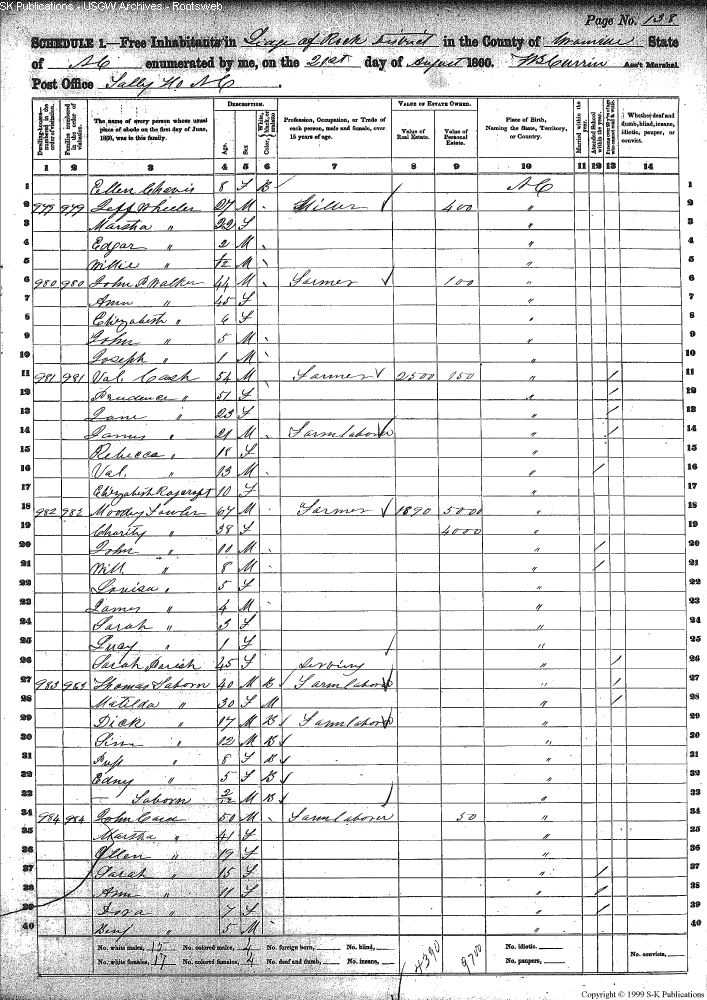 SK Publications - USGW Archives - Rootsweb
Page No. 138
SCHEDULE 1.—Free Inhabitants in District in the County of State
of NC enumerated by me, on the 21st day of August 1860. Ass't Marshal.
Post Office Tally Ho NC.
Dwelling-houses numbered in the order of visitation.
Families numbered in the order of visitation.
The name of every person whose usual place of abode on the first day of June, 1860, was in this family.
DESCRIPTION.
Age.
Sex
Color, White, black, or mulatto
Profession, Occupation, or Trade of each person, male and female, over 15 years of age.
VALUE OF ESTATE OWNED.
Value of Real Estate.
Value of Personal Estate.
Place of Birth, Naming the State, Territory, or Country.
Married within the year.
Attended School within the year.
Whether deaf and dumb, blind, insane, idiotic, pauper, or convict.
1 2 3 4 5 6 7 8 9 10 11 12 13 14
1 Ellen Chavis 8 F B NC 1
2 979 979 Jeff Wheeler 27 M Miller 400 " 2
3 Martha " 22 F " 3
4 Edgar " 2 M " 4
5 Willie " M " 5
6 980 980 John P Walker 44 M Farmer 100 " 6
7 Ann " 45 F " 7
8 Elizabeth " 6 F " 8
9 John " 5 M " 9
10 Joseph " 1 M " 10
11 981 981 Val. Cash 54 M Farmer 2500 150 " / 11
12 Prudence " 51 F " / 12
13 Jane " 23 F " / 13
14 James " 21 M Farm laborer " / 14
15 Rebecca " 18 F " 15
16 Val. " 13 M " / 16
17 Elizabeth 10 F " 17
18 982 982 Moody Fowler 67 M Farmer 1890 5000 " 18
19 Charity " 38 F 4000 " 19
20 John " 10 M " / 20
21 Will " 8 M " / 21
22 Louisa " 5 F " 22
23 James " 4 M " 23
24 Sarah " 3 F " 24
25 Lucy " 1 F " 25
26 Sarah Parish 45 F " / 26
27 983 983 Thomas Taborn 40 M B Farm laborer " / 27
28 Matilda " 30 F M " / 28
29 Dick " 17 M B Farm laborer " 29
30 " 12 M B " 30
31 " 8 F B " 31
32 Edny " 5 F B " 32
33 — Taborn 2/12 M B " 33
34 984 984 John 50 M Farm laborer 50 " 34
35 Martha " 41 F " 35
36 Ellen " 19 F " 36
37 Sarah " 15 F " / 37
38 Ann " 11 F " / 38
39 " 7 F " / 39
40 Benj " 5 M " 40
No. white males, 15 No. colored males, 4 No. foreign born, No. blind, 4390 9700 No. idiotic, No. convicts,
No. white females, 17 No. colored females, 4 No. deaf and dumb, No. insane, No. paupers,
Copyright © 1999 S-K Publications